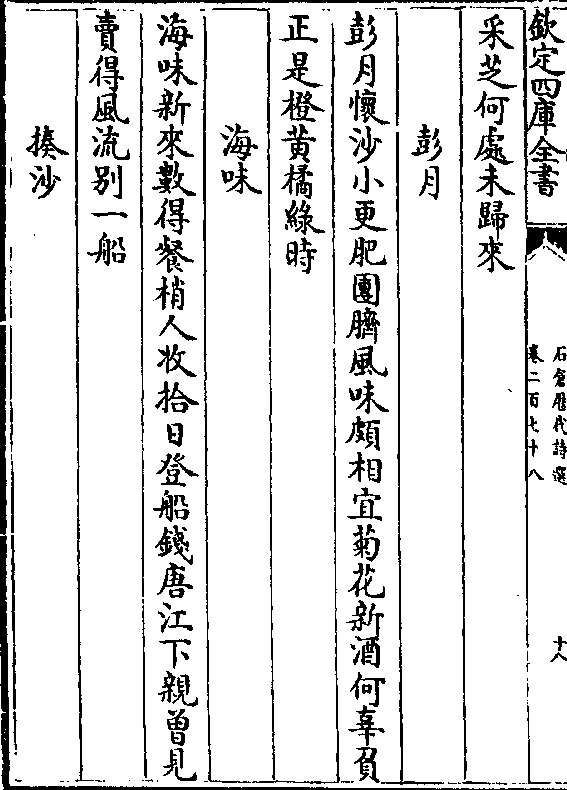 欽定四庫全書
石倉歴代詩選
卷二百七十八
十八
采芝何處未歸來
彭月
彭月懷沙小更肥團臍風味頗相宜菊花新酒何辜負
正是橙黃橘綠時
海味
海味新來數得餐梢人收拾日登船錢唐江下親曾見
賣得風流别一船
揍沙